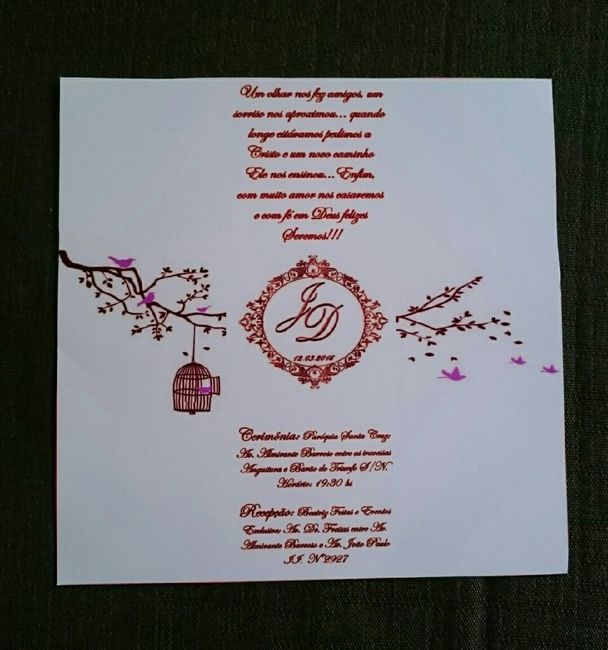 Um olhar nos fez amigos, um
sorriso nos aproximou... quando
longe estávamos pedimos a
Cristo e um novo caminho
Ele nos ensinou... Enfim,
com muito amor nos casaremos
e com fé em Deus felizes
Seremos!!!
J D
12.03.2016
Cerimônia: Paróquia Santa Cruz:
Av. Almirante Barroso entre as travessas
Angustura e Barão do Triunfo S/N.
Horário: 19:30 hs
Recepção: Beatriz Festas e Eventos
Exclusive; Av. Dr. Freitas entre Av.
Almirante Barroso e Av. João Paulo
II. Nº2927